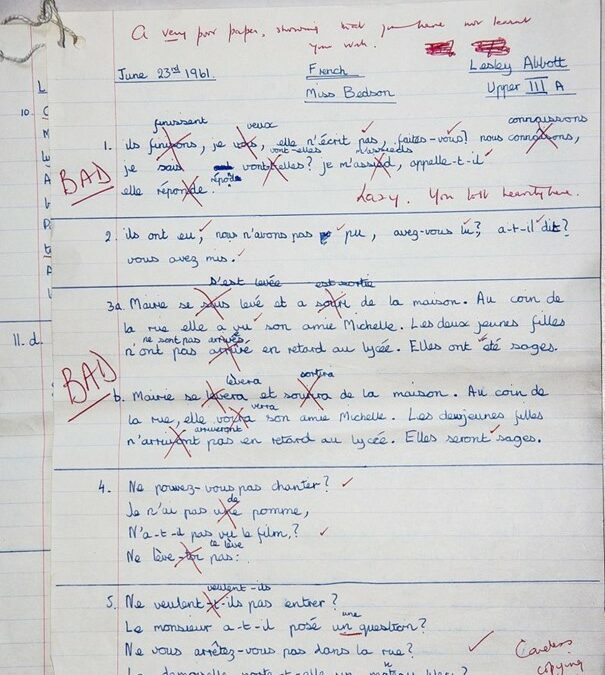 A very poor paper, showing that you have not learnt
your work.
June 23rd 1961.
French
Lesley Abbott
Miss Bedson
Upper III A
finissent veux connaissons
1. ils finissons, je vois, elle n'écrit pas, faites-vous? nous connaisons,
vont-elles m'assieds
je sais vont-elles? je m'assied, appelle-t-il
répond
elle réponde.
BAD
Lazy. You lost hearts here.
2. ils ont eu, nous n'avons pas pu, avez-vous lu?, a-t-il dit?
vous avez mis.
s'est levée est sortie
3a. Marie se suis levé et a souri de la maison. Au coin de
la rue elle a vu son amie Michelle. Les deux jeunes filles
ne sont pas arrivés
n'ont pas arrivé en retard au lycée. Elles ont été sages.
BAD
lèvera sortira
b. Marie se levera et sourira de la maison. Au coin de
verra
la rue, elle voira son amie Michelle. Les deux jeunes filles
arriveront
n'arruyont pas en retard au lycée. Elles seront sages.
4. Ne pouvez-vous pas chanter?
de
Je n'ai pas une pomme,
N'a-t-il pas vu le film,?
te lève
Ne lève-toi pas.
veulent-ils
5. Ne veulent-t-ils pas entrer?
une
Le monsieur a-t-il posé un question?
Ne vous arrêtez-vous pas dans la rue?
Careless
copying
10.
11. d.